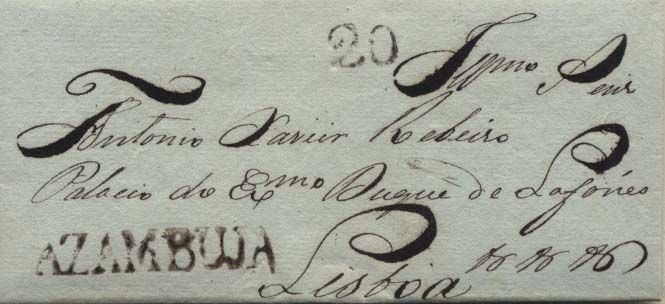 20
Illmo Senr
Antonio Xavier Rebeiro
Palacio do Exmo Duque de Lafões
AZAMBUJA
Lisboa